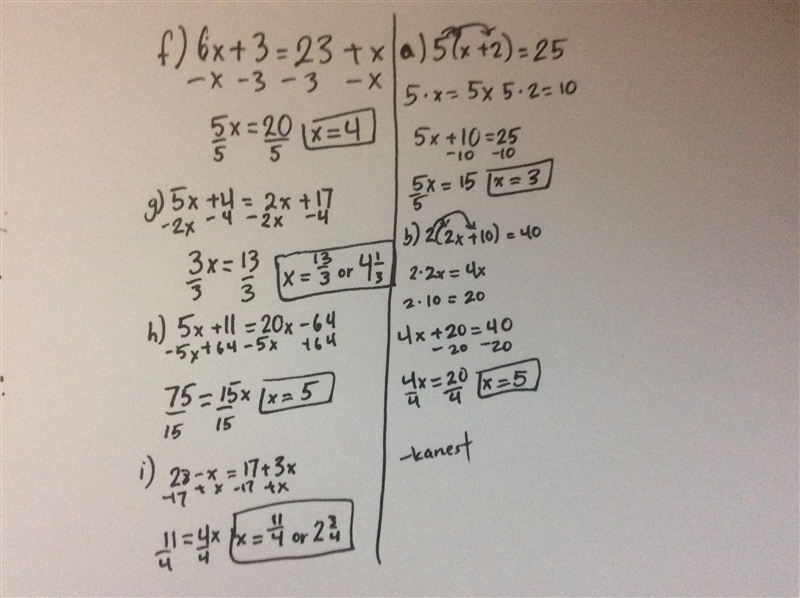 f) 6x+3=23+x
-x -3 -3 -x
5x/5 = 20/5 x=4
g) 5x+4=2x+17
-2x -4 -2x -4
3x/3 = 13/3 x = 13/3 or 4 1/3
h) 5x+11=20x-64
-5x+64 -5x +64
75/15 = 15x/15 x=5
i) 28-x=17+3x
-17 +x -17 +x
11/4 = 4x/4 x = 11/4 or 2 3/4
a) 5(x+2)=25
5·x=5x 5·2=10
5x+10=25
-10 -10
5x/5 = 15 x=3
b) 2(2x+10)=40
2·2x=4x
2·10=20
4x+20=40
-20 -20
4x/4 = 20/4 x=5
-kanest